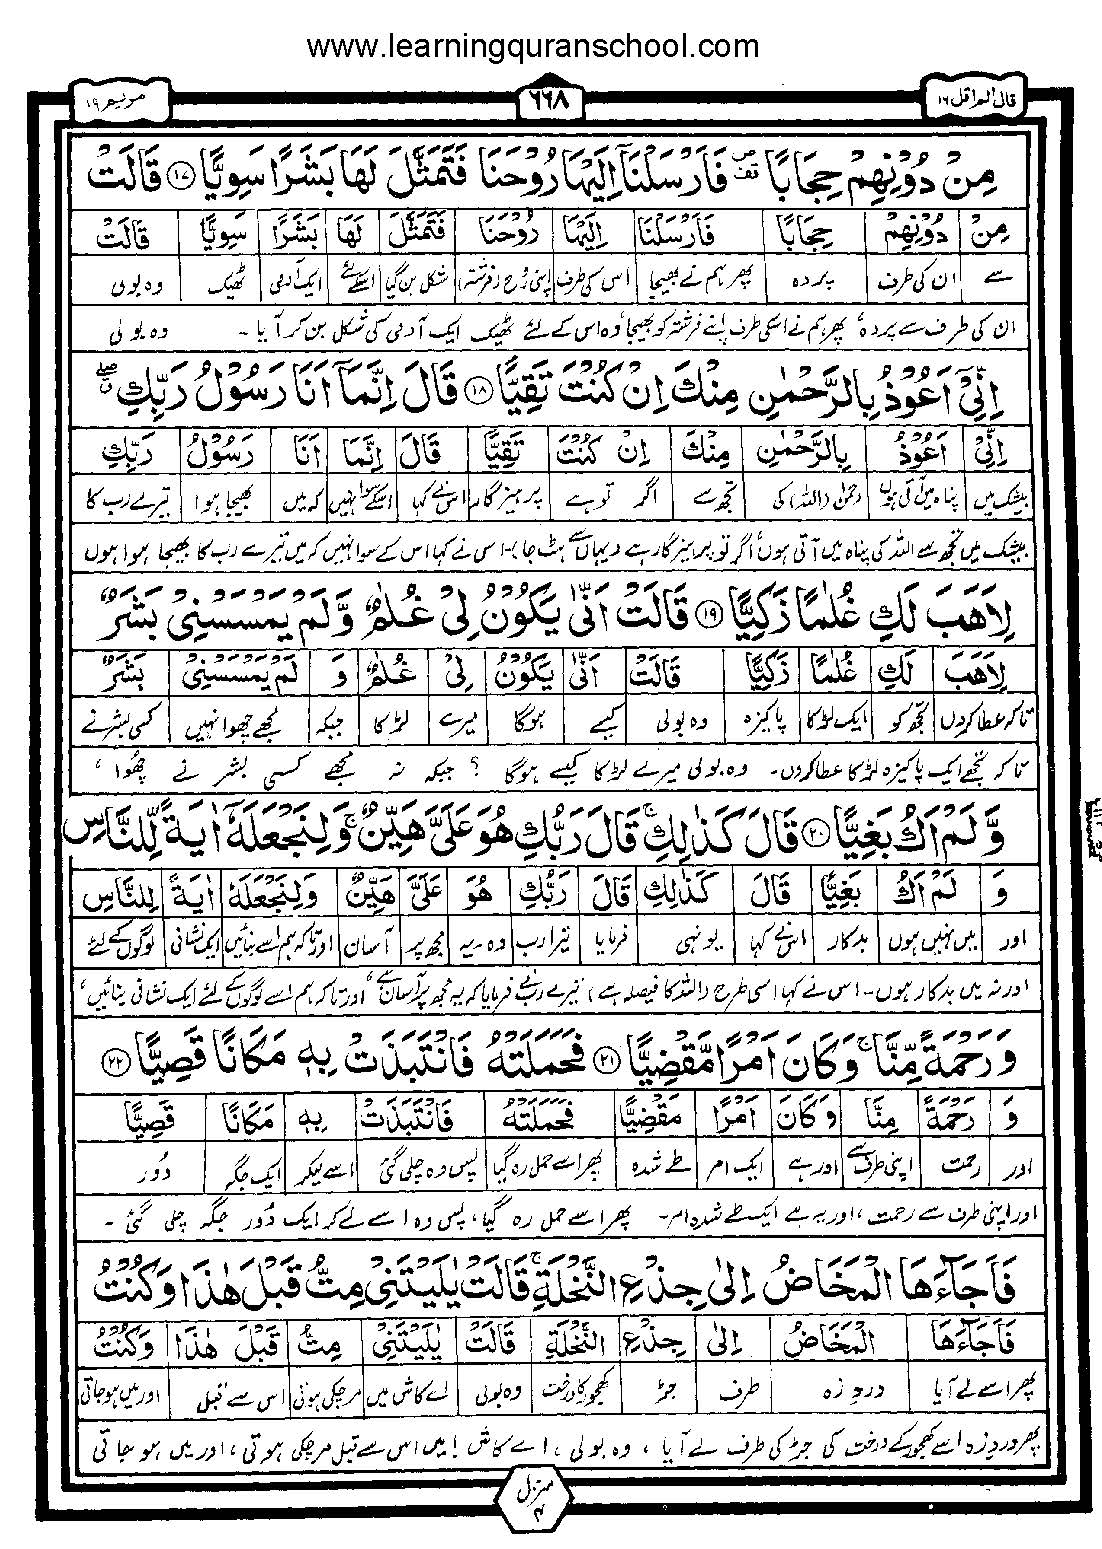 www.learningquranschool.com
قال الم اقل ١٦
٦٦٨
مريم ١٩
مِنْ دُوْنِهِمْ حِجَابًا فَاَرْسَلْنَاۤ اِلَيْهَا رُوْحَنَا فَتَمَثَّلَ لَهَا بَشَرًا سَوِيًّا ١٧ قَالَتْ
مِنْ دُوْنِهِمْ حِجَابًا فَاَرْسَلْنَا اِلَيْهَا رُوْحَنَا فَتَمَثَّلَ لَهَا بَشَرًا سَوِيًّا قَالَتْ
سے ان کی طرف پردہ پھر ہم نے بھیجا اس کی طرف اپنی روح (فرشتہ) شکل بن گیا اسکے لئے ایک آدمی ٹھیک وہ بولی
ان کی طرف سے پردہ، پھر ہم نے اسکی طرف اپنے فرشتہ کو بھیجا، وہ اس کے لئے ٹھیک ایک آدمی کی شکل بن کر آیا۔ وہ بولی
اِنِّيْۤ اَعُوْذُ بِالرَّحْمٰنِ مِنْكَ اِنْ كُنْتَ تَقِيًّا ١٨ قَالَ اِنَّمَاۤ اَنَا رَسُوْلُ رَبِّكِ
اِنِّيْۤ اَعُوْذُ بِالرَّحْمٰنِ مِنْكَ اِنْ كُنْتَ تَقِيًّا قَالَ اِنَّمَا اَنَا رَسُوْلُ رَبِّكِ
بیشک میں پناہ میں آتی ہوں رحمٰن (اللہ) کی تجھ سے اگر تو ہے پرہیزگار اس نے کہا اسکے سوا نہیں کہ میں بھیجا ہوا تیرے رب کا
بیشک میں تجھ سے اللہ کی پناہ میں آتی ہوں، اگر تو پرہیزگار ہے (یہاں سے ہٹ جا)۔ اس نے کہا اس کے سوا نہیں کہ میں تیرے رب کا بھیجا ہوا ہوں
لِاَهَبَ لَكِ غُلٰمًا زَكِيًّا ١٩ قَالَتْ اَنّٰى يَكُوْنُ لِيْ غُلٰمٌ وَّلَمْ يَمْسَسْنِيْ بَشَرٌ
لِاَهَبَ لَكِ غُلٰمًا زَكِيًّا قَالَتْ اَنّٰى يَكُوْنُ لِيْ غُلٰمٌ وَ لَمْ يَمْسَسْنِيْ بَشَرٌ
تاکہ عطا کروں تجھ کو ایک لڑکا پاکیزہ وہ بولی کیسے ہوگا میرے لڑکا جبکہ مجھے چھوا نہیں کسی بشر نے
تاکہ تجھے ایک پاکیزہ لڑکا عطا کروں۔ وہ بولی میرے لڑکا کیسے ہوگا ؟ جبکہ نہ مجھے کسی بشر نے چھُوا ،
وَّلَمْ اَكُ بَغِيًّا ٢٠ قَالَ كَذٰلِكِ ۚ قَالَ رَبُّكِ هُوَ عَلَيَّ هَيِّنٌ ۚ وَلِنَجْعَلَهٗۤ اٰيَةً لِّلنَّاسِ
وَ لَمْ اَكُ بَغِيًّا قَالَ كَذٰلِكِ قَالَ رَبُّكِ هُوَ عَلَيَّ هَيِّنٌ وَلِنَجْعَلَهٗ اٰيَةً لِلنَّاسِ
اور میں نہیں ہوں بدکار اس نے کہا یونہی فرمایا تیرا رب وہ ۔ یہ مجھ پر آسان اور تاکہ ہم اسے بنائیں ایک نشانی لوگوں کے لئے
اور نہ میں بدکار ہوں۔ اس نے کہا اسی طرح (اللہ کا فیصلہ ہے)، تیرے رب نے فرمایا کہ یہ مجھ پر آسان ہے، اور تاکہ ہم اسے لوگوں کے لئے ایک نشانی بنائیں،
وَرَحْمَةً مِّنَّا ۚ وَكَانَ اَمْرًا مَّقْضِيًّا ٢١ فَحَمَلَتْهُ فَانْتَبَذَتْ بِهٖ مَكَانًا قَصِيًّا ٢٢
وَ رَحْمَةً مِنَّا وَكَانَ اَمْرًا مَقْضِيًّا فَحَمَلَتْهُ فَانْتَبَذَتْ بِهٖ مَكَانًا قَصِيًّا
اور رحمت اپنی طرف سے اور ہے ایک امر طے شدہ پھر اسے حمل رہ گیا پس وہ چلی گئی اسے لیکر ایک جگہ دُور
اور اپنی طرف سے رحمت، اور یہ ہے ایک طے شدہ امر۔ پھر اسے حمل رہ گیا، پس وہ اسے لے کر ایک دُور جگہ چلی گئی ۔
فَاَجَآءَهَا الْمَخَاضُ اِلٰى جِذْعِ النَّخْلَةِ ۚ قَالَتْ يٰلَيْتَنِيْ مِتُّ قَبْلَ هٰذَا وَكُنْتُ
فَاَجَآءَهَا الْمَخَاضُ اِلٰى جِذْعِ النَّخْلَةِ قَالَتْ يٰلَيْتَنِيْ مِتُّ قَبْلَ هٰذَا وَكُنْتُ
پھر اسے لے آیا دردِ زہ طرف جڑ کھجور کا درخت وہ بولی اے کاش میں مر چکی ہوتی اس سے قبل اور میں ہو جاتی
پھر دردِ زہ اسے کھجور کے درخت کی جڑ کی طرف لے آیا ، وہ بولی ، اے کاش ! میں اس سے قبل مر چکی ہوتی ، اور میں ہو جاتی
منزل
۴